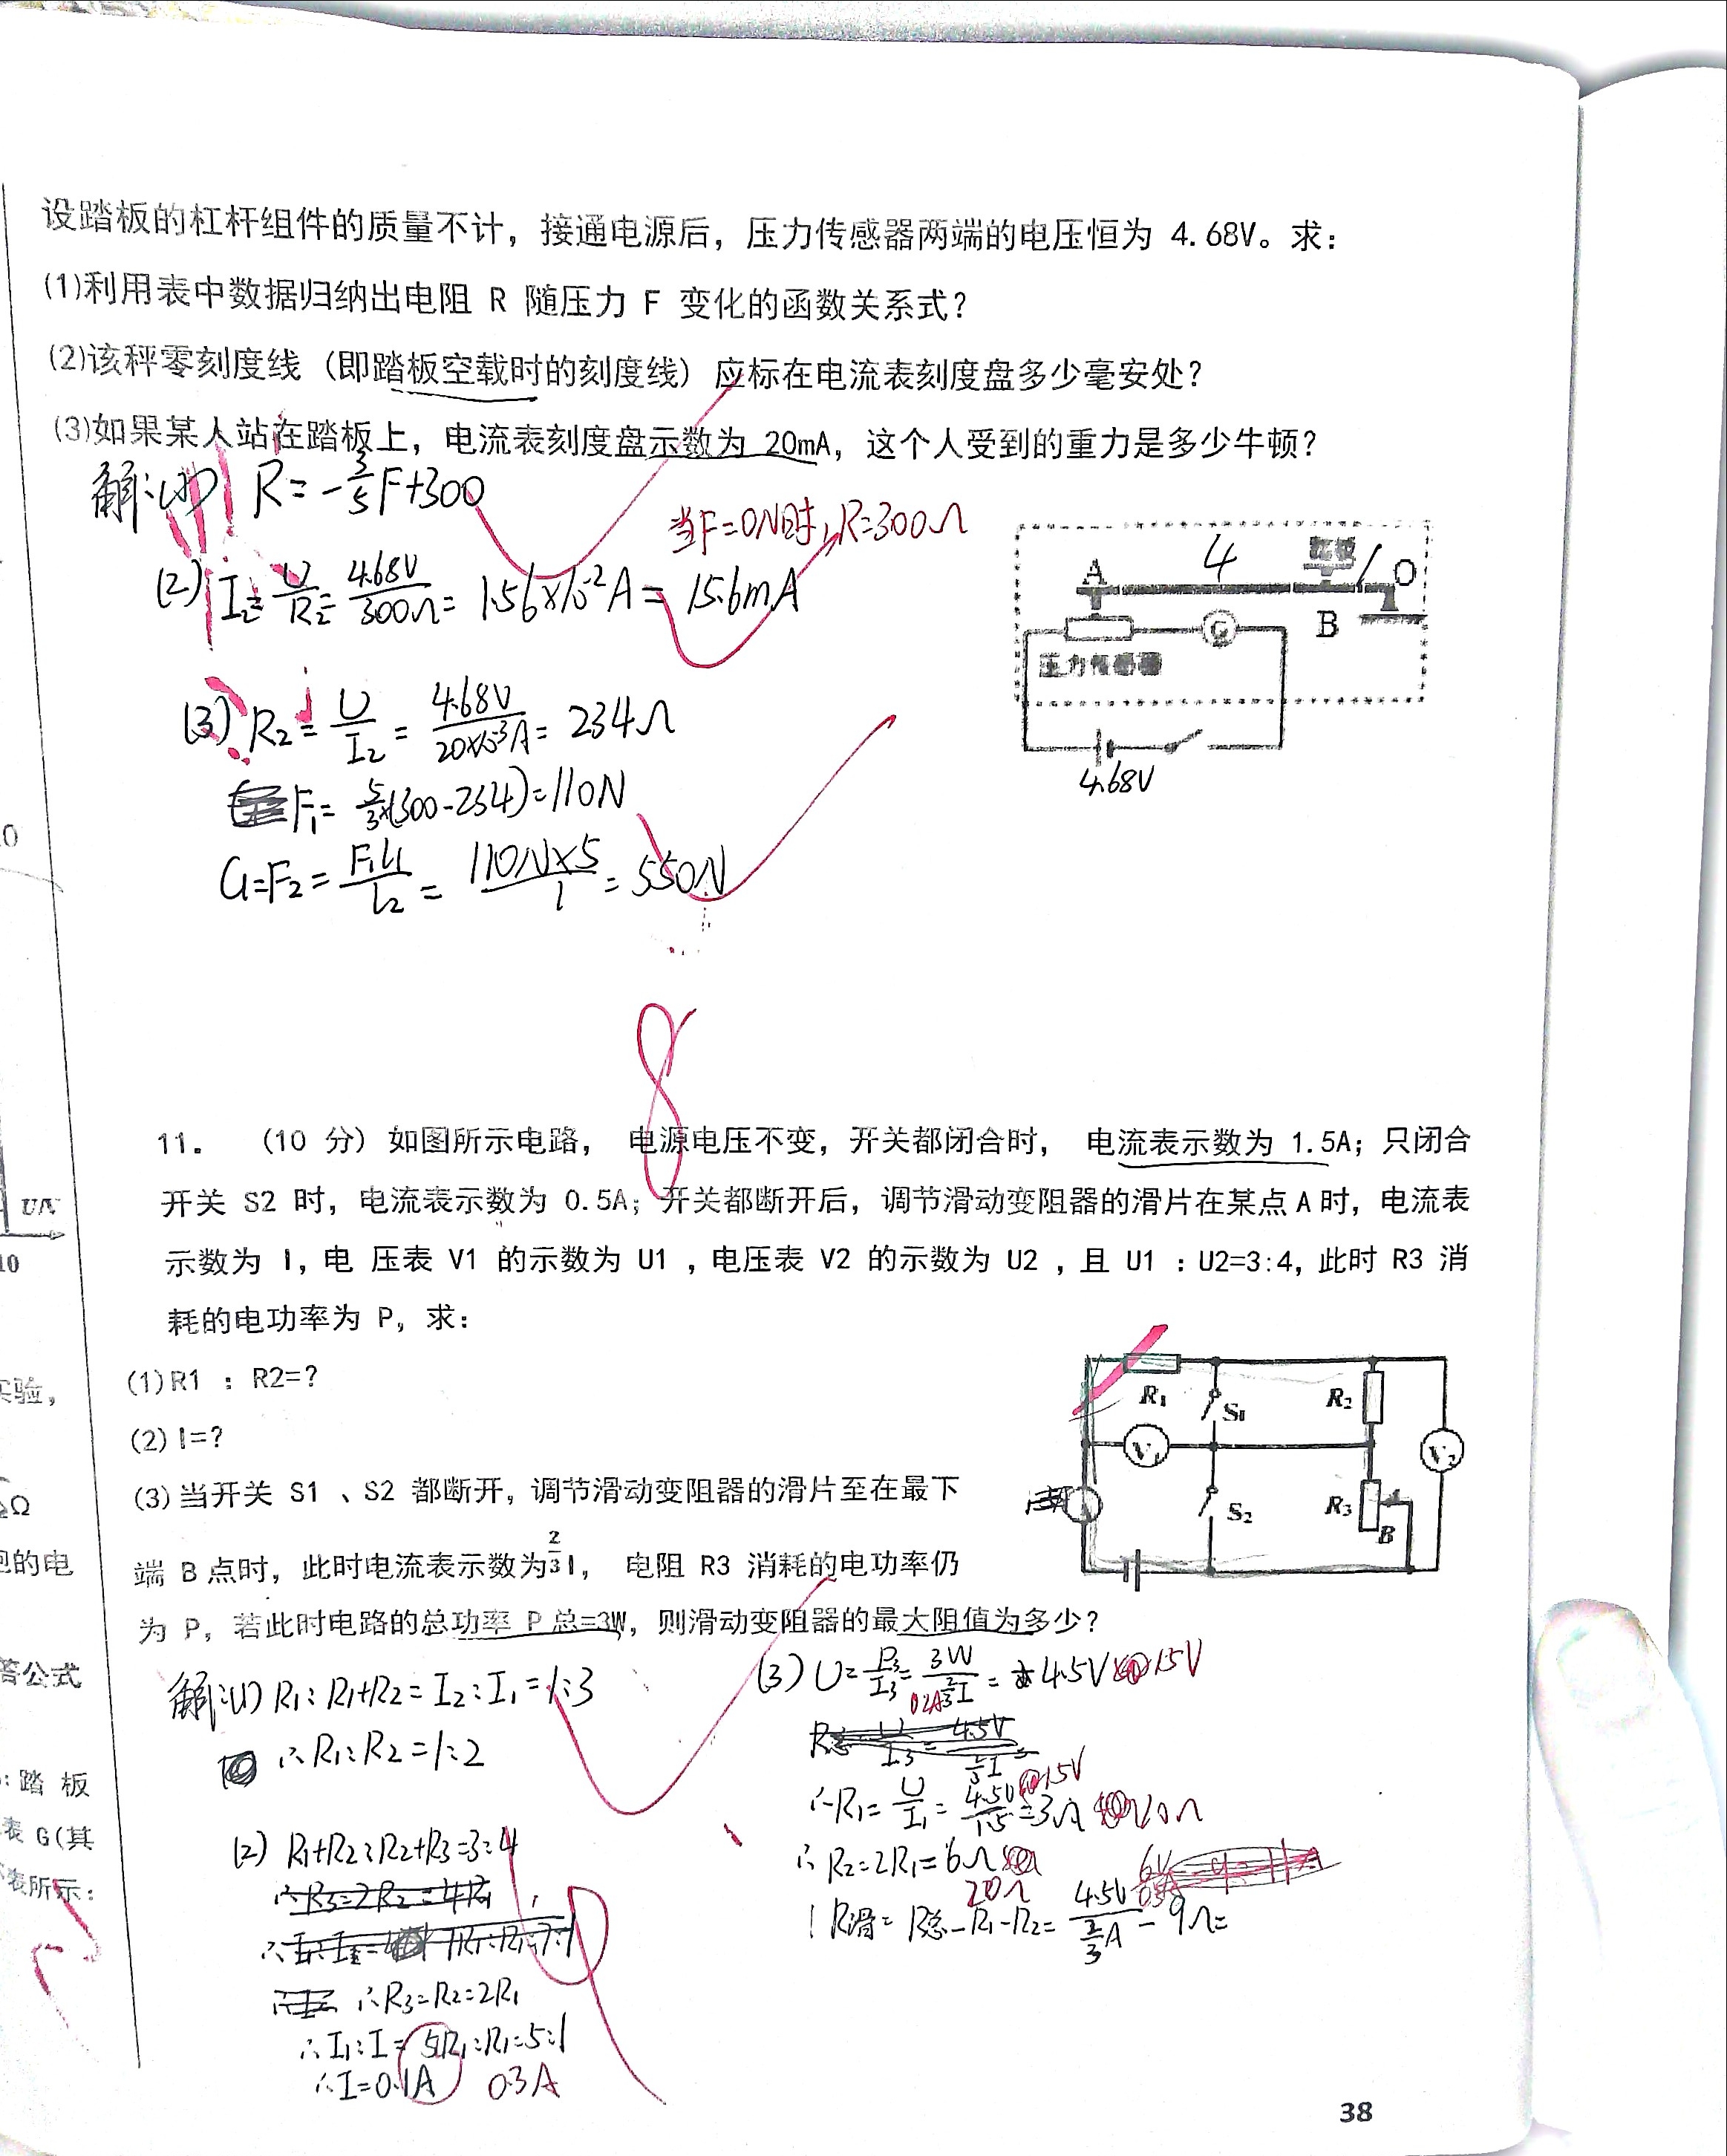 设踏板的杠杆组件的质量不计，接通电源后，压力传感器两端的电压恒为 4.68V。求：
(1)利用表中数据归纳出电阻 R 随压力 F 变化的函数关系式？
(2)该秤零刻度线（即踏板空载时的刻度线）应标在电流表刻度盘多少毫安处？
(3)如果某人站在踏板上，电流表刻度盘示数为 20mA，这个人受到的重力是多少牛顿？
解：(1) R=-3/5F+300
当F=0N时，R=300Ω
(2) I₂=U/R₂=4.68V/300Ω=1.56×10⁻²A=15.6mA
A 4 踏板 1 O
G B
压力传感器
4.68V
(3) R₂=U/I₂=4.68V/20×10⁻³A=234Ω
F₁=5/3×(300-234)=110N
G=F₂=F₁l₁/l₂=110N×5/1=550N
8
11. (10 分) 如图所示电路， 电源电压不变，开关都闭合时， 电流表示数为 1.5A；只闭合
开关 S2 时，电流表示数为 0.5A；开关都断开后，调节滑动变阻器的滑片在某点 A 时，电流表
示数为 I，电 压表 V1 的示数为 U1 ，电压表 V2 的示数为 U2 ，且 U1 : U2=3:4，此时 R3 消
耗的电功率为 P，求：
(1)R1 : R2=?
(2)I=?
(3)当开关 S1 、S2 都断开，调节滑动变阻器的滑片至在最下
端 B 点时，此时电流表示数为2/3I， 电阻 R3 消耗的电功率仍
为 P，若此时电路的总功率 P 总=3W，则滑动变阻器的最大阻值为多少？
R₁ S₁ R₂
V₁ V₂
S₂ R₃ B
解：(1) R₁:R₁+R₂=I₂:I₁=1:3
∴R₁:R₂=1:2
(2) R₁+R₂:R₂+R₃=3:4
∴R₃=R₂=2R₁
∴I₁:I=5R₁:R₁=5:1
∴I=0.1A 0.3A
(3) U=P₃/I₃=3W/2/3I=4.5V 15V
0.2A
∴R₁=U/I₁=4.5V/1.5=3Ω 10Ω
15V
∴R₂=2R₁=6Ω
20Ω
R滑=R总-R₁-R₂=4.5V/2/3A-9Ω=
38
UN
10
实验，
Ω
的电
答公式
：踏 板
表 G(其
表所示：